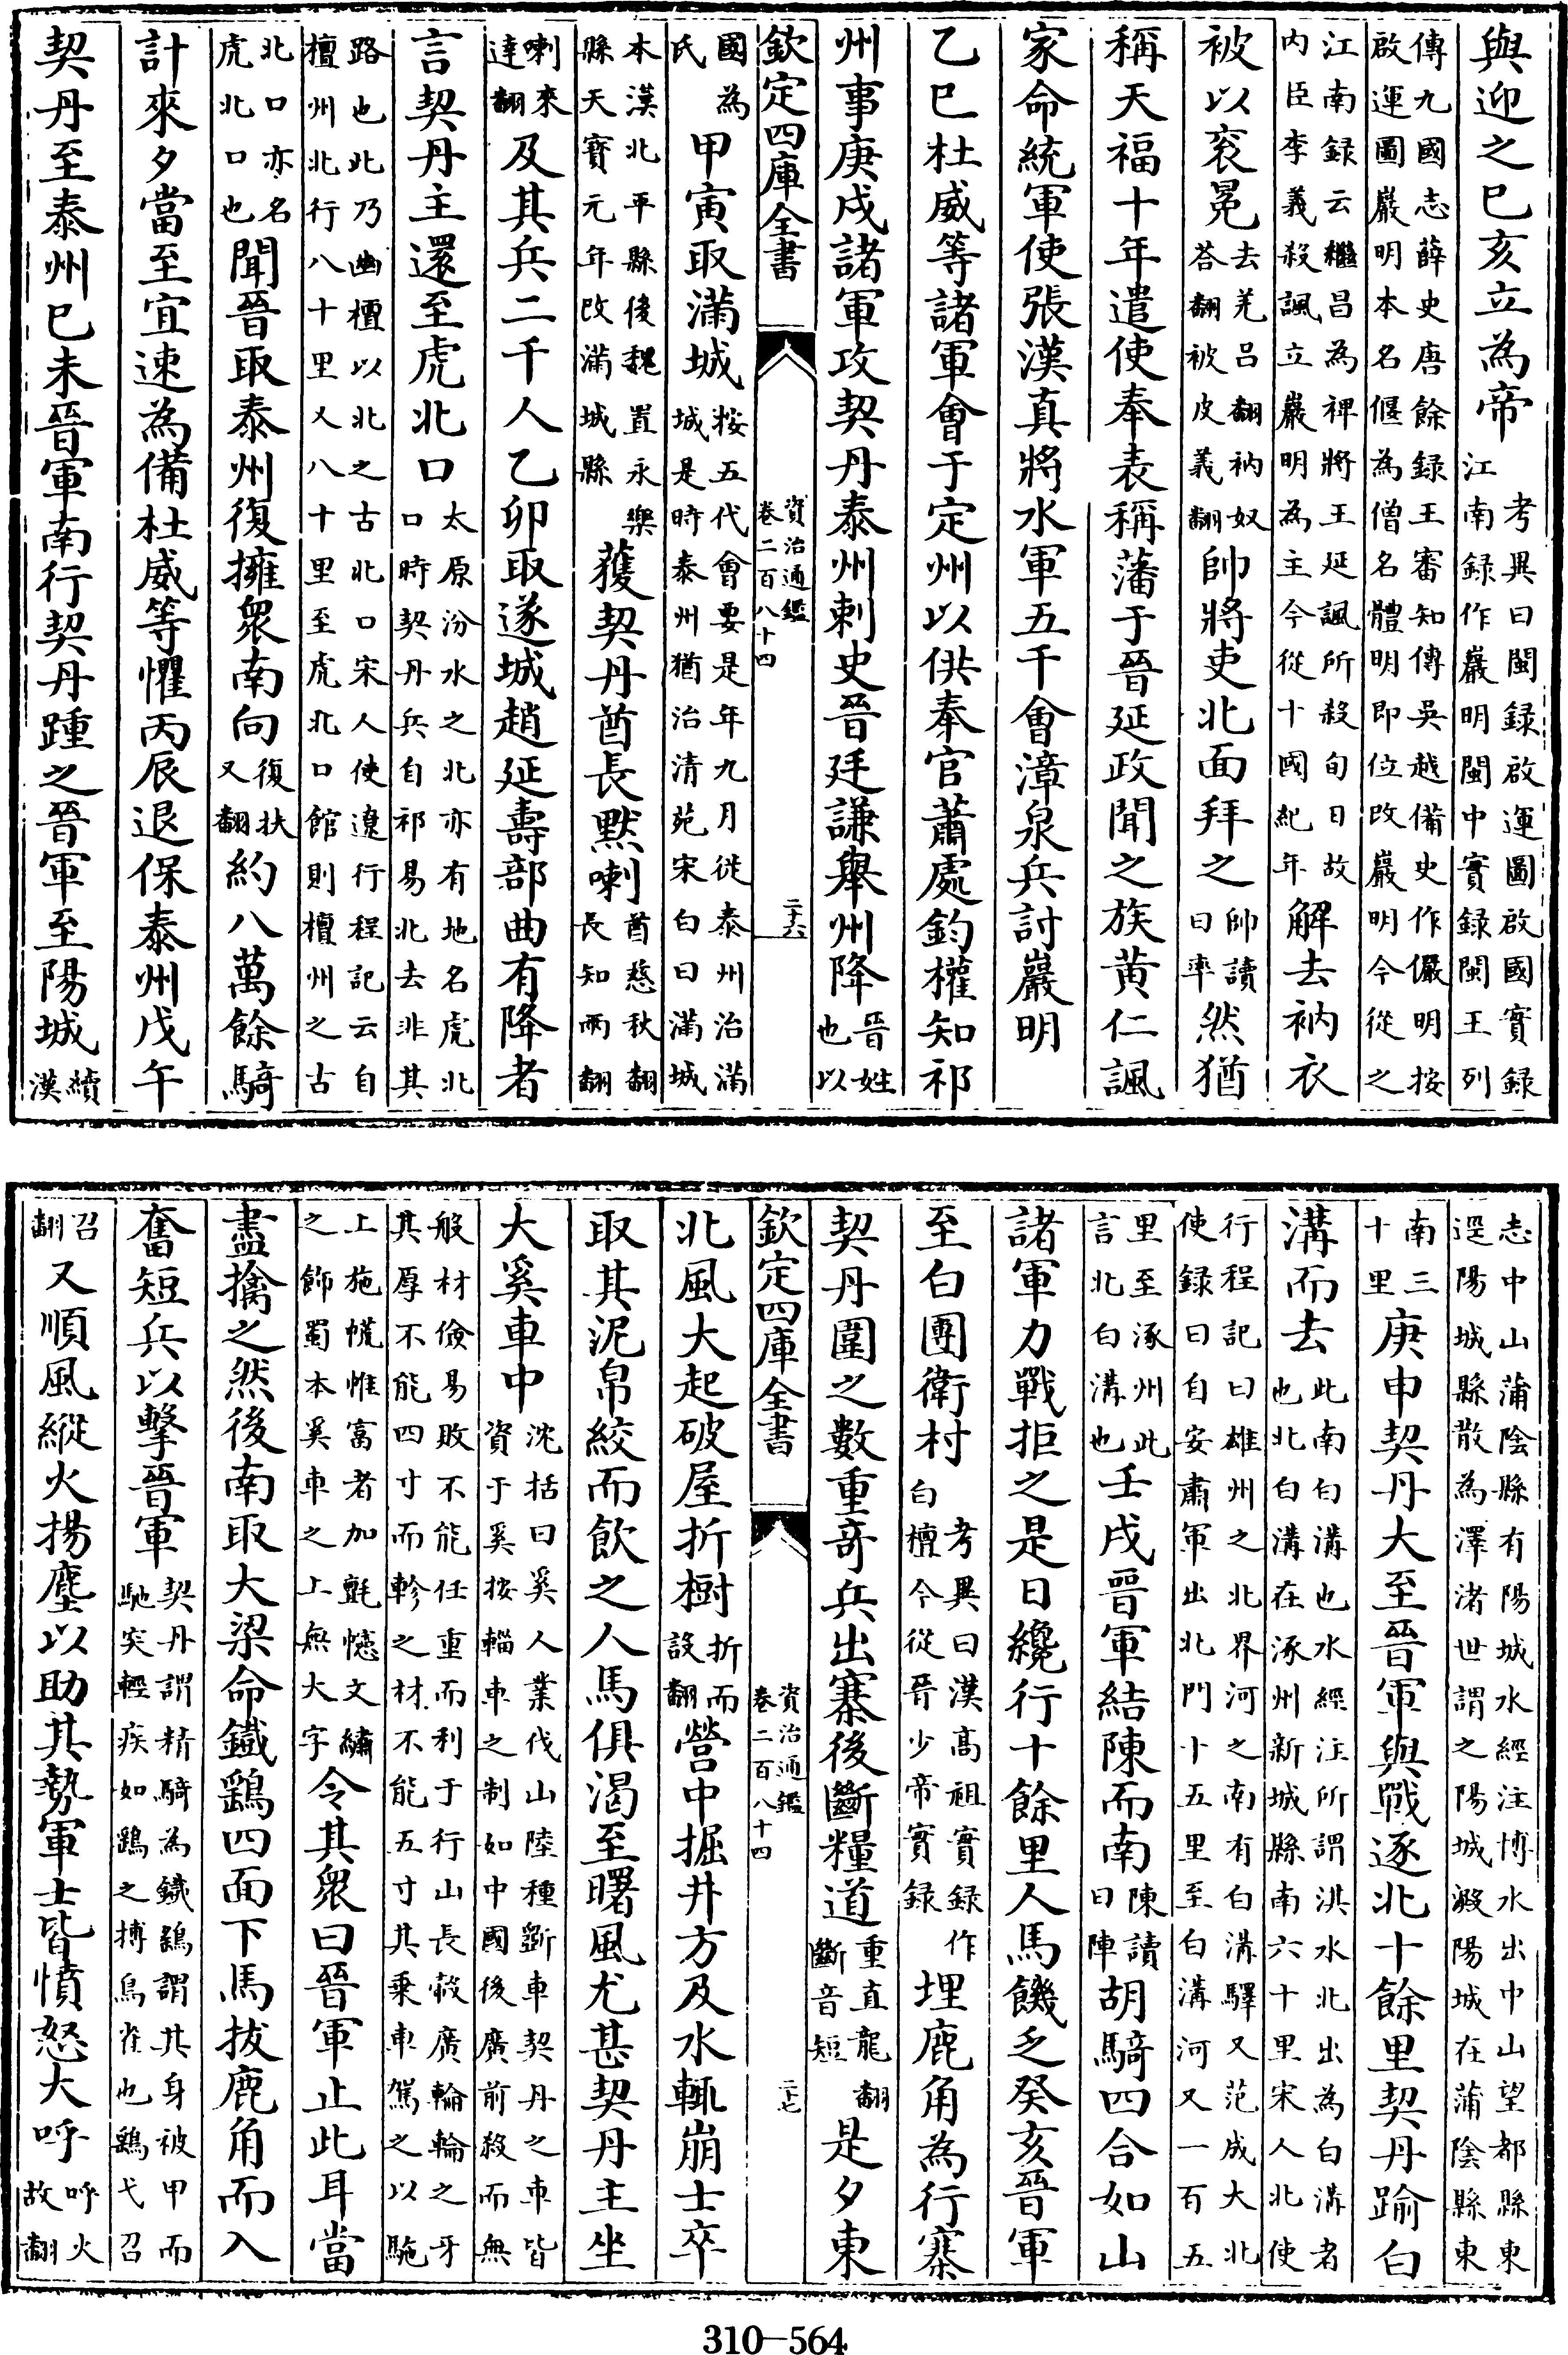 與迎之已亥立為帝考異曰閩録啟運圖啟國實録江南録作巖明閩中實録閩王列
傳九國志薛史唐餘録王審知傳吳越備史作儼明按啟運圖巖明本名偃為僧名體明即位改巖明今從之
江南録云繼昌為裨將王延諷所殺旬日故内臣李義殺諷立巖明為主今從十國紀年解去衲衣
被以衮冕去羌吕翻衲奴荅翻被皮義翻帥將吏北面拜之帥讀曰率然猶
稱天福十年遣使奉表稱藩于晉延政聞之族黄仁諷
家命統軍使張漢真將水軍五千會漳泉兵討巖明
乙巳杜威等諸軍會于定州以供奉官蕭處鈞權知祁
州事庚戌諸軍攻契丹泰州刺史晉廷謙舉州降晉姓也以
欽定四庫全書
資治通鑑
卷二百八十四
二十六
國為氏甲寅取滿城按五代會要是年九月徙泰州治滿城是時泰州猶治清苑宋白曰滿城
本漢北平縣後魏置永樂縣天寶元年改滿城縣獲契丹酋長黙喇酋慈秋翻長知兩翻
喇來達翻及其兵二千人乙卯取遂城趙延壽部曲有降者
言契丹主還至虎北口太原汾水之北亦有地名虎北口時契丹兵自祁易北去非其
路也此乃幽檀以北之古北口宋人使遼行程記云自檀州北行八十里又八十里至虎北口館則檀州之古
北口亦名虎北口也聞晉取泰州復擁衆南向復扶又翻約八萬餘騎
計來夕當至宜速為備杜威等懼丙辰退保泰州戊午
契丹至泰州已未晉軍南行契丹踵之晉軍至陽城續漢
志中山蒲陰縣有陽城水經注博水出中山望都縣東逕陽城縣散為澤渚世謂之陽城澱陽城在蒲陰縣東
南三十里庚申契丹大至晉軍與戰逐北十餘里契丹踰白
溝而去此南白溝也水經注所謂洪水北出為白溝者也北白溝在涿州新城縣南六十里宋人北使
行程記曰雄州之北界河之南有白溝驛又范成大北使録曰自安肅軍出北門十五里至白溝河又一百五
里至涿州此言北白溝也壬戌晉軍結陳而南陳讀曰陣胡騎四合如山
諸軍力戰拒之是日纔行十餘里人馬饑乏癸亥晉軍
至白團衛村考異曰漢高祖實録作白檀今從晉少帝實録埋鹿角為行寨
契丹圍之數重竒兵出寨後斷糧道重直龍翻斷音短是夕東
欽定四庫全書
資治通鑑
卷二百八十四
二十七
北風大起破屋折樹折而設翻營中掘井方及水輒崩士卒
取其泥帛絞而飲之人馬俱渴至曙風尤甚契丹主坐
大奚車中沈括曰奚人業伐山陸種斵車契丹之車皆資于奚按輜車之制如中國後廣前殺而無
般材儉易敗不能任重而利于行山長轂廣輪輪之牙其厚不能四寸而軫之材不能五寸其乗車駕之以駞
上施幰惟富者加氈幰文繡之飾蜀本奚車之上無大字令其衆曰晉軍止此耳當
盡擒之然後南取大梁命鐵鷂四面下馬拔鹿角而入
奮短兵以擊晉軍契丹謂精騎為鐵鷂謂其身被甲而馳突輕疾如鷂之搏鳥雀也鷂弋召
召翻又順風縱火揚塵以助其勢軍士皆憤怒大呼呼火故翻
310-564